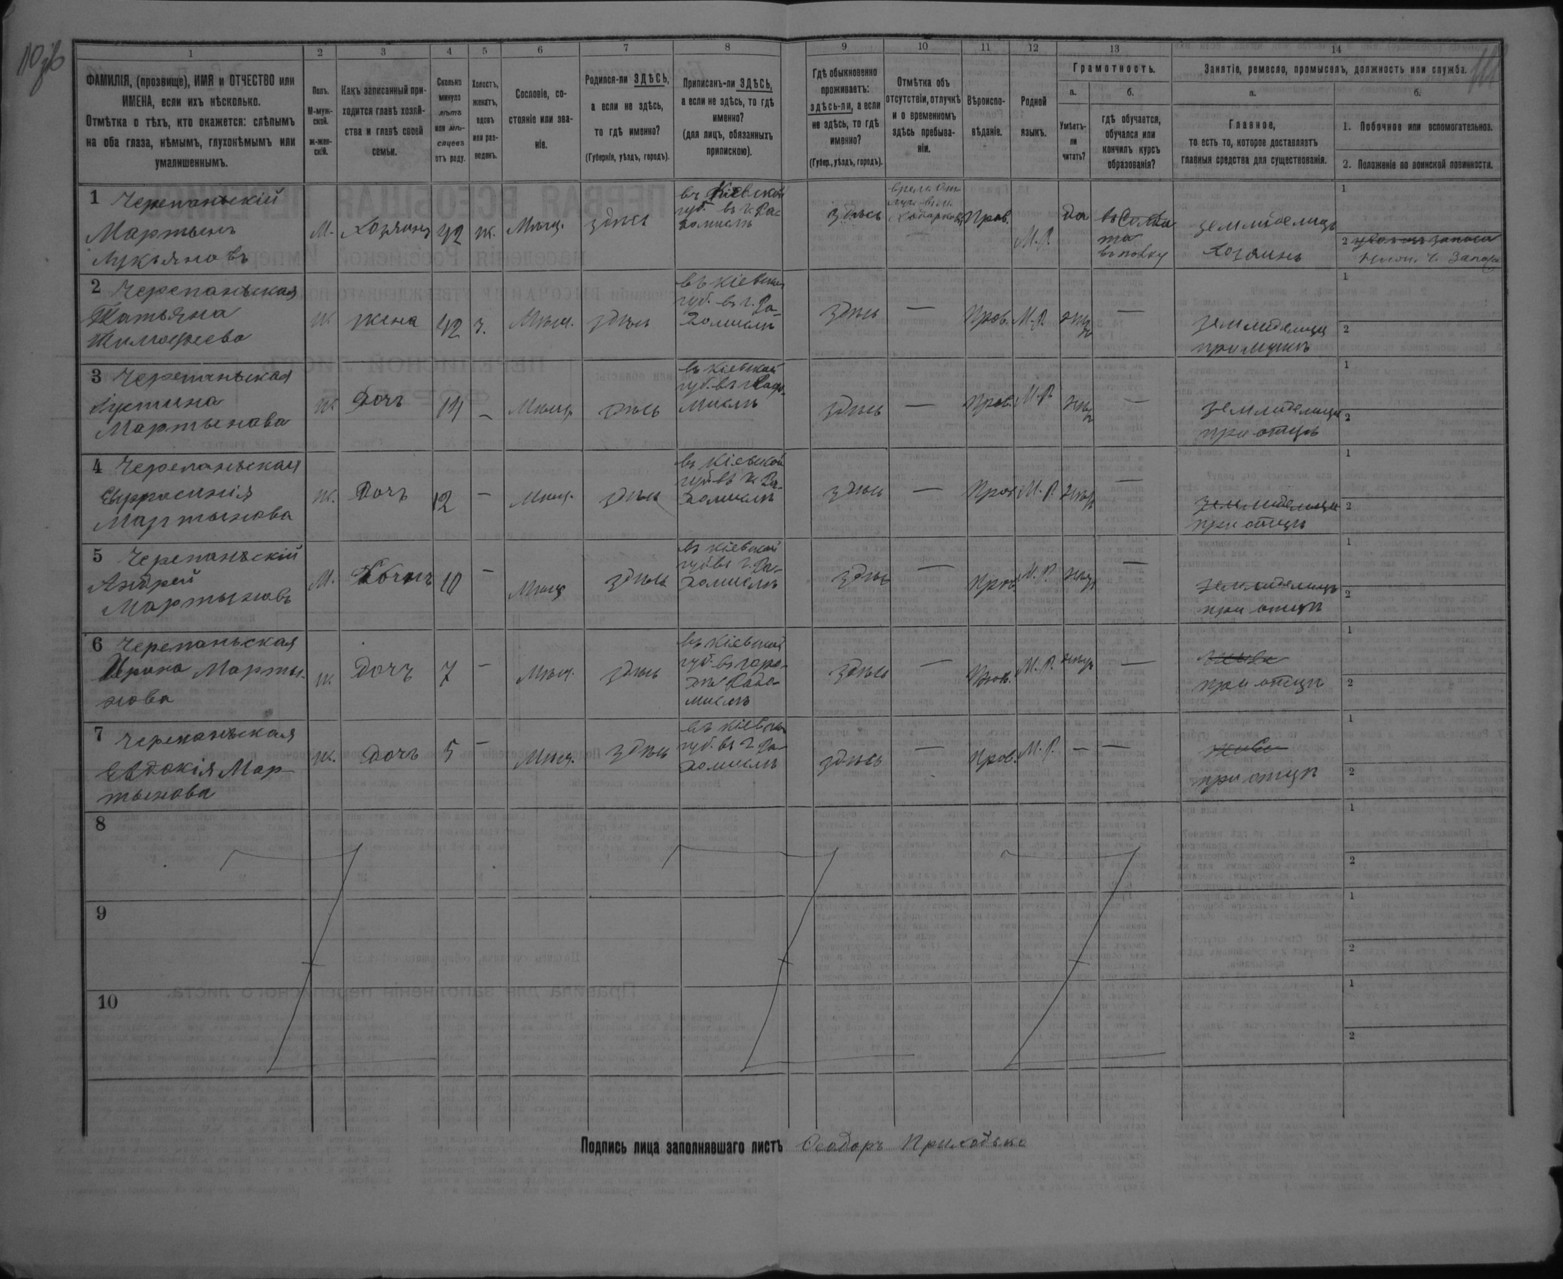 1
2
3
4
5
6
7
8
9
10
11
12
13
14
ФАМИЛІЯ, (прозвище), ИМЯ и ОТЧЕСТВО или
ИМЕНА, если ихъ нѣсколько.
Отмѣтка о тѣхъ, кто окажется: слѣпымъ
на оба глаза, нѣмымъ, глухонѣмымъ или
умалишеннымъ.
Полъ.
М-муж-
ской.
Ж-жен-
скій.
Какъ записанный при-
ходится главѣ хозяй-
ства и главѣ своей
семьи.
Сколько
минуло
лѣтъ
или мѣ-
сяцевъ
отъ роду.
Холостъ,
женатъ,
вдовъ
или раз-
веденъ.
Сословіе, со-
стояніе или зва-
ніе.
Родился-ли ЗДѢСЬ,
а если не здѣсь,
то гдѣ именно?
(Губернія, уѣздъ, городъ).
Приписанъ-ли ЗДѢСЬ,
а если не здѣсь, то гдѣ
именно?
(для лицъ, обязанныхъ
припискою).
Гдѣ обыкновенно
проживаетъ:
здѣсь-ли, а если
не здѣсь, то гдѣ
именно?
(Губерн., уѣздъ, городъ).
Отмѣтка объ
отсутствіи, отлучкѣ
и о временномъ
здѣсь пребыва-
ніи.
Вѣроиспо-
вѣданіе.
Родной
языкъ.
Грамотность.
а.
Умѣетъ-
ли
читать?
б.
гдѣ обучается,
обучался или
кончилъ курсъ
образованія?
Занятіе, ремесло, промыселъ, должность или служба.
а.
Главное,
то есть то, которое доставляетъ
главныя средства для существованія.
б.
1. Побочное или вспомогательное.
2. Положеніе по воинской повинности.
1 Черепанскій
Мартынъ
Лукьяновъ
М. Хозяинъ 42 ж. Мѣщ. здѣсь
въ Кіевской
губ. въ г. Ра-
домислѣ
здѣсь
Прав. М.Р. да
землѣделецъ
Хозяинъ
1
2
2 Черепанская
Татьяна
Тимофеева
ж жена 42 з. Мѣщ. здѣсь
въ Кіевской
губ. въ г. Ра-
домислѣ
здѣсь — Прав. М.Р. —
при мужѣ
1
2
3 Черепанская
Мартынова
ж Дочь 14 — Мѣщ. здѣсь
въ Кіевской
губ. въ г. Радо-
мислѣ
здѣсь — Прав. М.Р. —
при отцѣ
1
2
4 Черепанская
Ефросинія
Мартынова
ж. Дочь 12 — Мѣщ. здѣсь
въ Кіевской
губ. въ г. Ра-
домислѣ
здѣсь — Прав. М.Р. —
при отцѣ
1
2
5 Черепанскій
Андрей
Мартыновъ
М. 10 — Мѣщ здѣсь
въ Кіевской
губ. въ г. Ра-
домислѣ
здѣсь — Прав. М.Р. —
землѣделецъ
при отцѣ
1
2
6 Черепанская
Ирина Марты-
нова
ж Дочь 7 — Мѣщ. здѣсь
въ Кіевской
губ. въ горо-
дѣ Радо-
мислѣ
здѣсь — Прав. М.Р. —
при отцѣ
1
2
7 Черепанская
Евдокія Мар-
тынова
ж. Дочь 5 — Мѣщ. здѣсь
въ Кіевской
губ. въ г. Ра-
домислѣ
здѣсь — Прав. М.Р. — —
при отцѣ
1
2
8
1
2
9
1
2
10
1
2
Подпись лица заполнявшаго листъ Ѳеодоръ Приходько